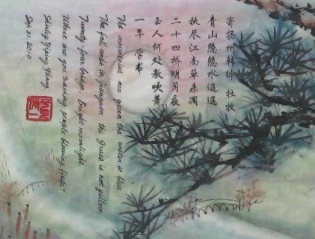 寄揚州韓綽 杜牧
青山隱隱水迢迢
秋尽江南草未凋
二十四橋明月夜
玉人何処教吹簫
一平
The mountains are green the water is blue,
The fall ends in Jiangnan the grass is not yellow.
Twenty four bridges, Bright moonlight,
Where are you training people blowing flute?
Yiping
Sep 21. 2010